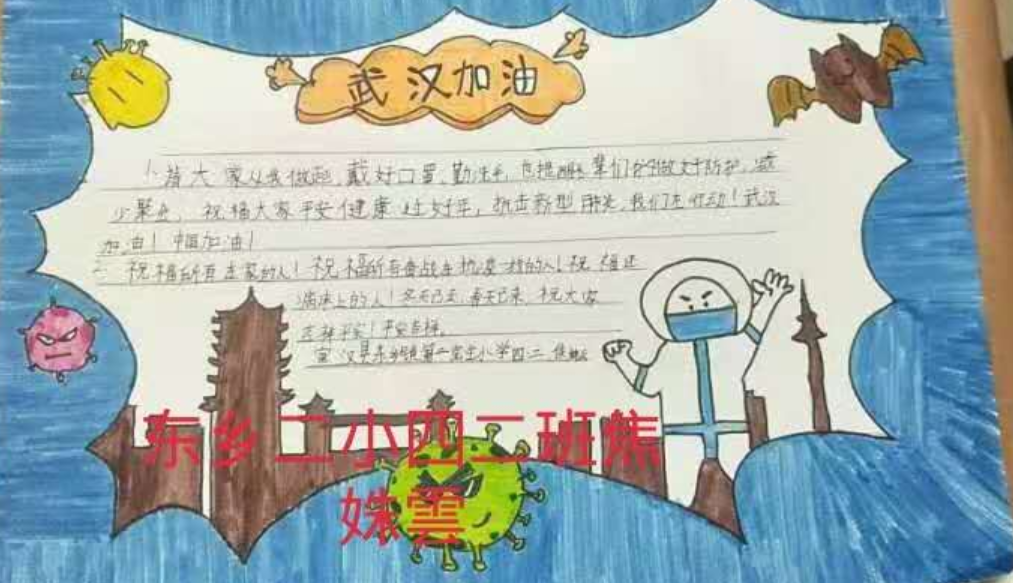 武汉加油
1、请大家从我做起,戴好口罩、勤洗手,也提醒家人们做好防护,减
少聚会,祝福大家平安健康过好年,抗击新型肺炎,我们在行动!武汉
加油!中国加油!
二、祝福所有在家的人!祝福所有奋战在抗疫一线的人!祝福还
病床上的人!冬天已去,春天已来,祝大家
吉祥平安!平安吉祥。
宣汉县东乡镇第二完全小学四二
东乡二小四二班焦
姝雲